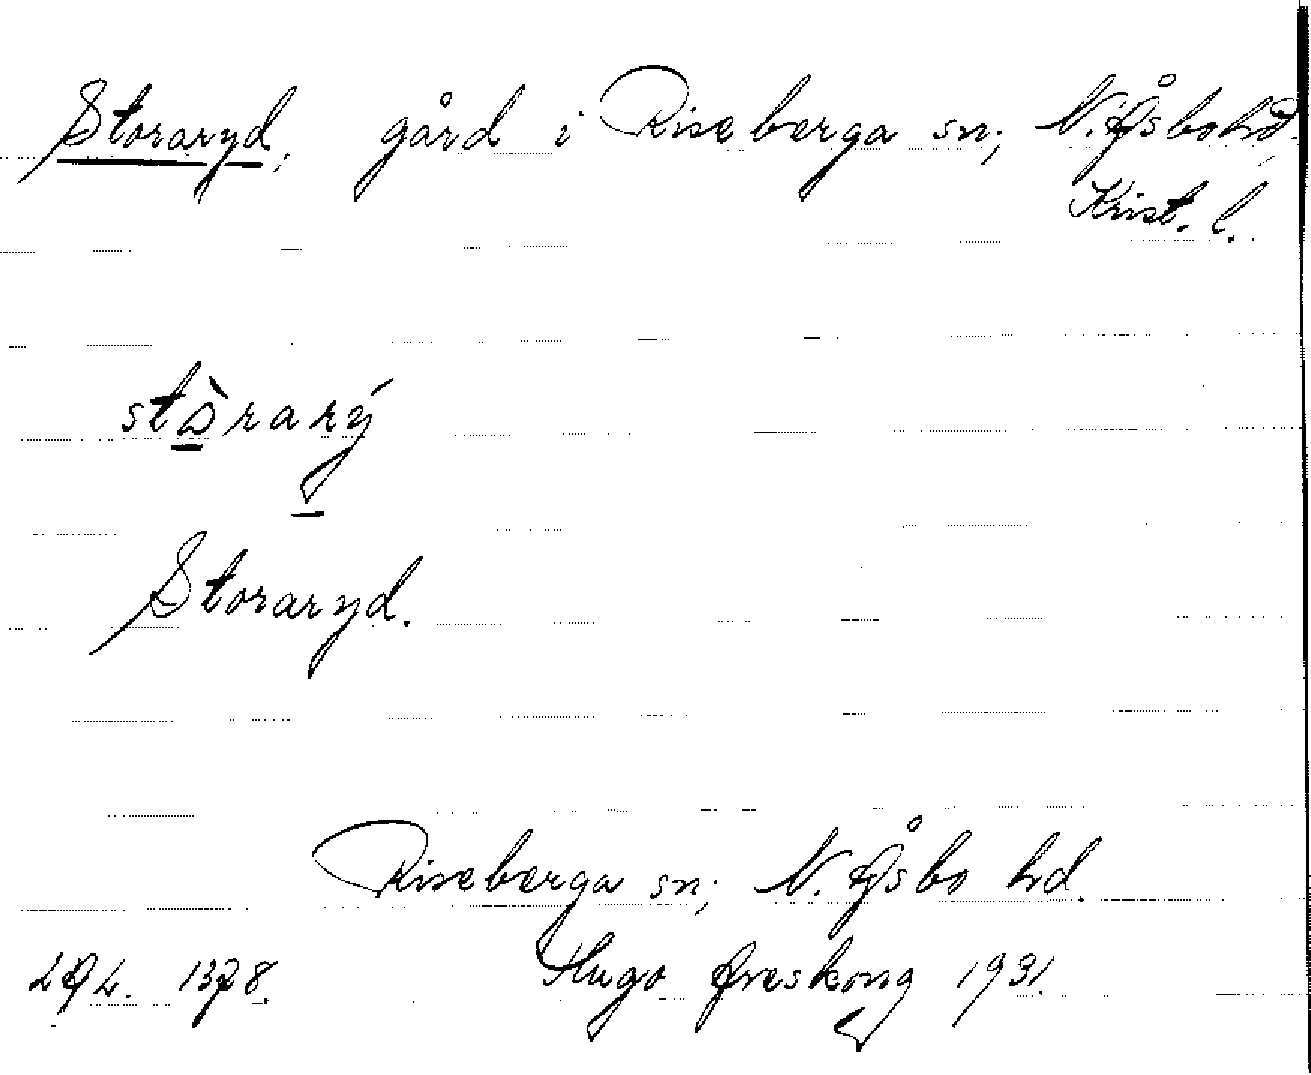 Storaryd, gård i Riseberga sn; N. Åsbo hd.
Krist. l.
stòrarý
Storaryd.
Riseberga sn; N. Åsbo hd.
1378. Hugo Areskoug 1931.